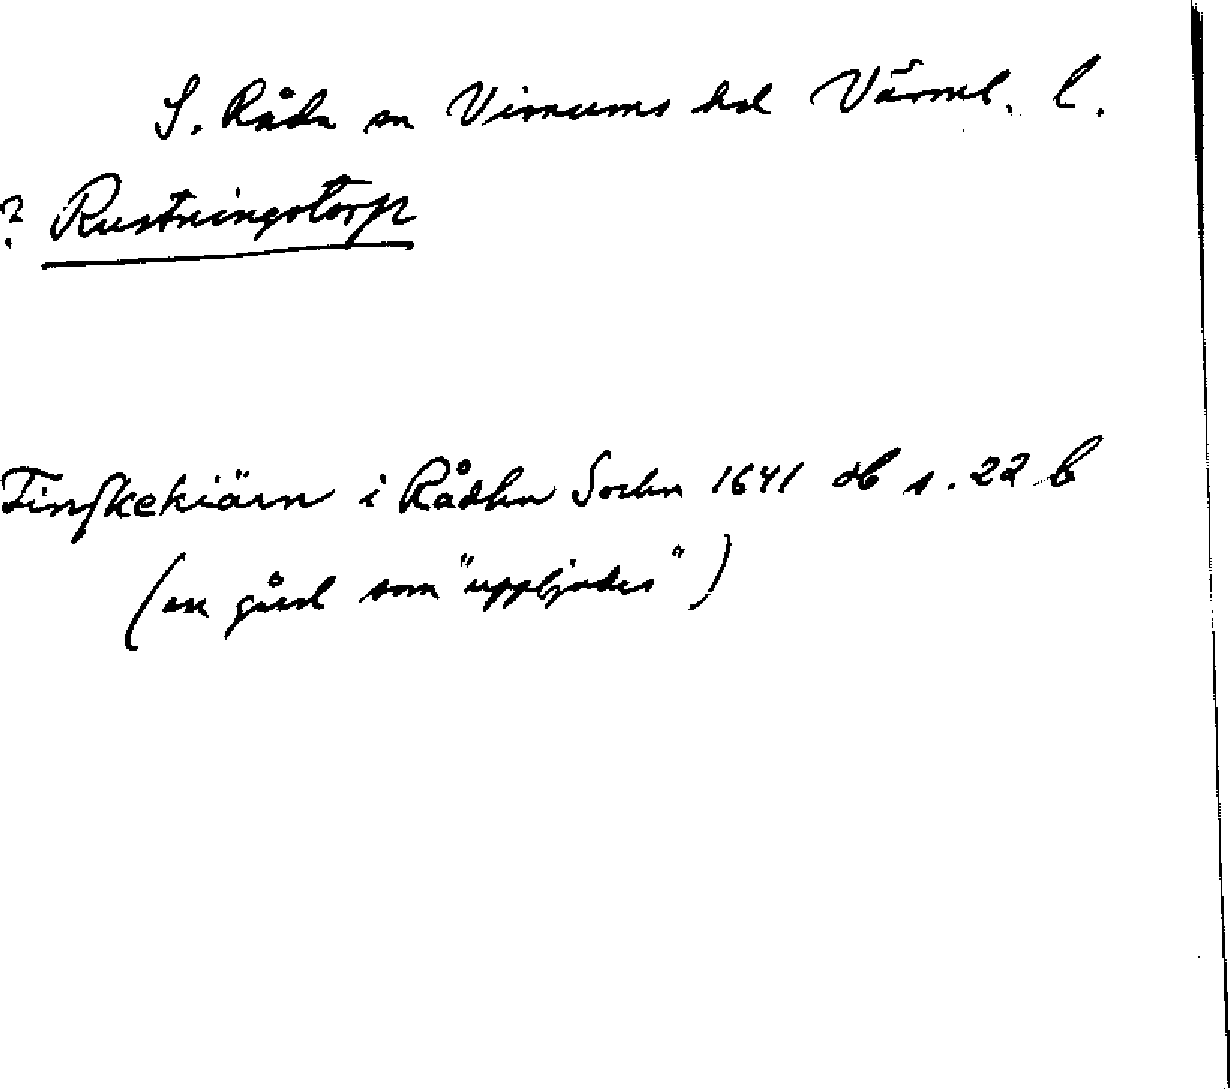 S. Råda sn Visnums hd Värml. l.
? Rustningstorp
Tinſkekiärn i Rådha Sochn 1641 db s. 22 b
(en gård som "uppbjudes")